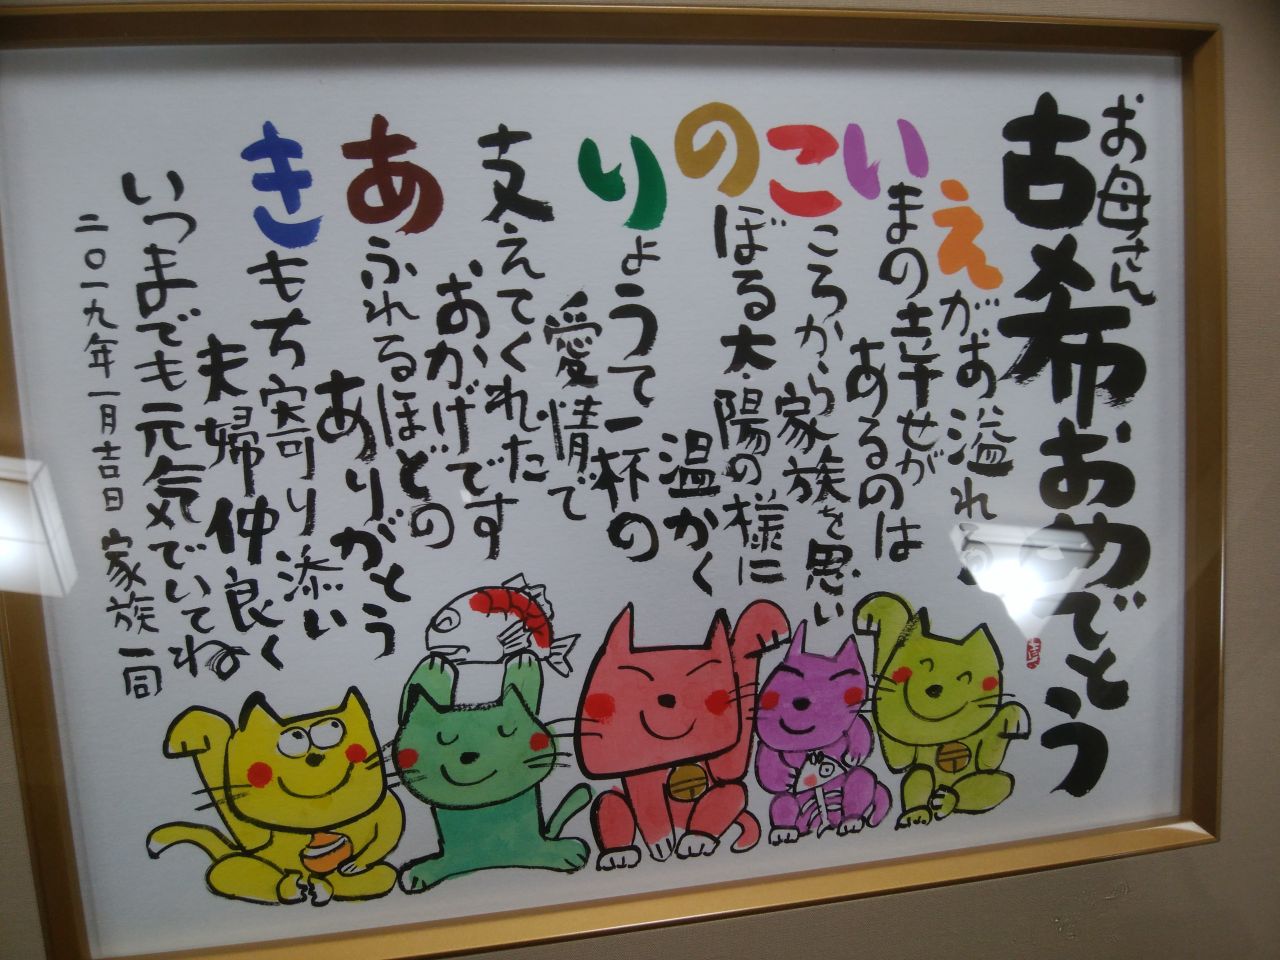 お母さん
古希おめでとう
えがお溢れる
いまの幸せが
あるのは
こころから家族を思い
のぼる太陽の様に
温かく
りょうて一杯の
愛情で
支えてくれた
おかげです
あふれるほどの
ありがとう
きもち寄り添い
夫婦仲良く
いつまでも元気でいてね
二〇一九年一月吉日 家族一同